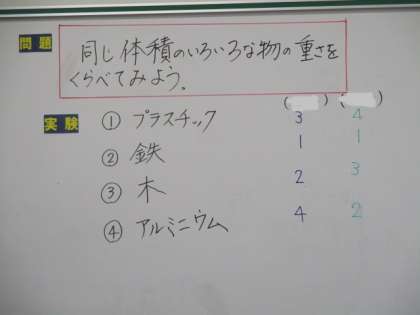 問題
同じ体積のいろいろな物の重さを
くらべてみよう。
( ) ( )
実験 ① プラスチック 3 4
② 鉄 1 1
③ 木 2 3
④ アルミニウム 4 2